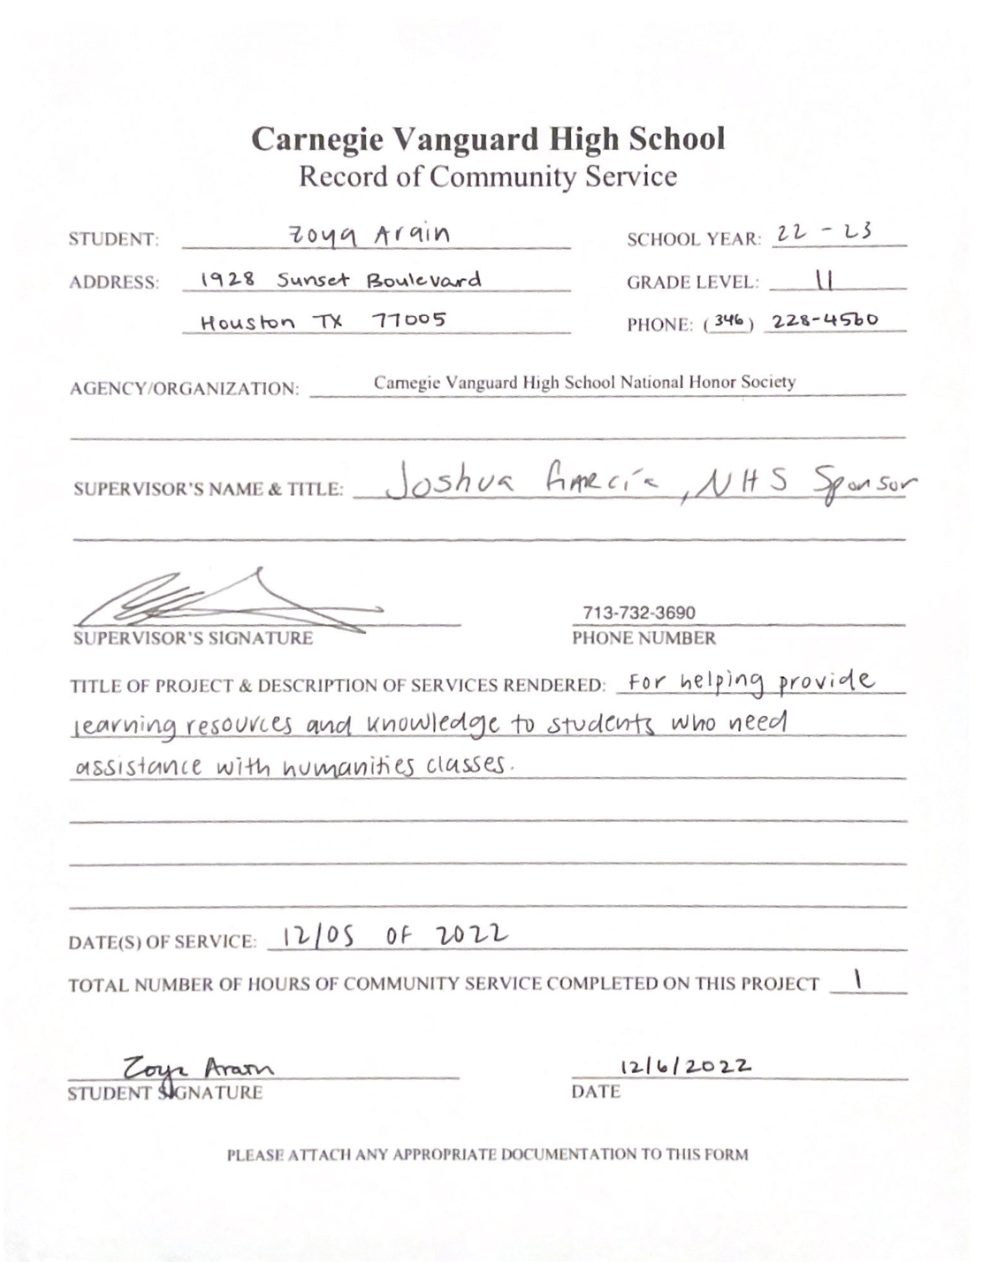 Carnegie Vanguard High School
Record of Community Service
STUDENT: Zoya Arain SCHOOL YEAR: 22 - 23
ADDRESS: 1928 Sunset Boulevard GRADE LEVEL: 11
Houston TX 77005 PHONE: (346) 228-4560
AGENCY/ORGANIZATION: Carnegie Vanguard High School National Honor Society
SUPERVISOR'S NAME & TITLE: Joshua , NHS Sponsor
713-732-3690
SUPERVISOR'S SIGNATURE PHONE NUMBER
TITLE OF PROJECT & DESCRIPTION OF SERVICES RENDERED: For helping provide
learning resources and knowledge to students who need
assistance with humanities classes.
DATE(S) OF SERVICE: 12/05 OF 2022
TOTAL NUMBER OF HOURS OF COMMUNITY SERVICE COMPLETED ON THIS PROJECT 1
Zoya Arain 12/6/2022
STUDENT SIGNATURE DATE
PLEASE ATTACH ANY APPROPRIATE DOCUMENTATION TO THIS FORM